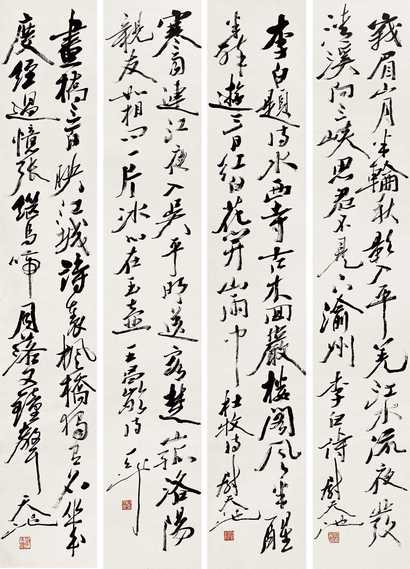 峨眉山月半輪秋影入平羌江水流夜發
清溪向三峡思君不見下渝州 李白詩 尉天池
李白題詩水西寺古木回巖樓閣風半醒
半醉遊三日紅白花開山雨中 杜牧詩 尉天池
寒雨連江夜入吳平明送客楚孤洛陽
親友如相问一片冰心在玉壺 王昌齡詩 天池
畫橋三百映江城詩裏楓橋獨有名幾
度經過憶張繼烏啼月落又鐘聲 天池